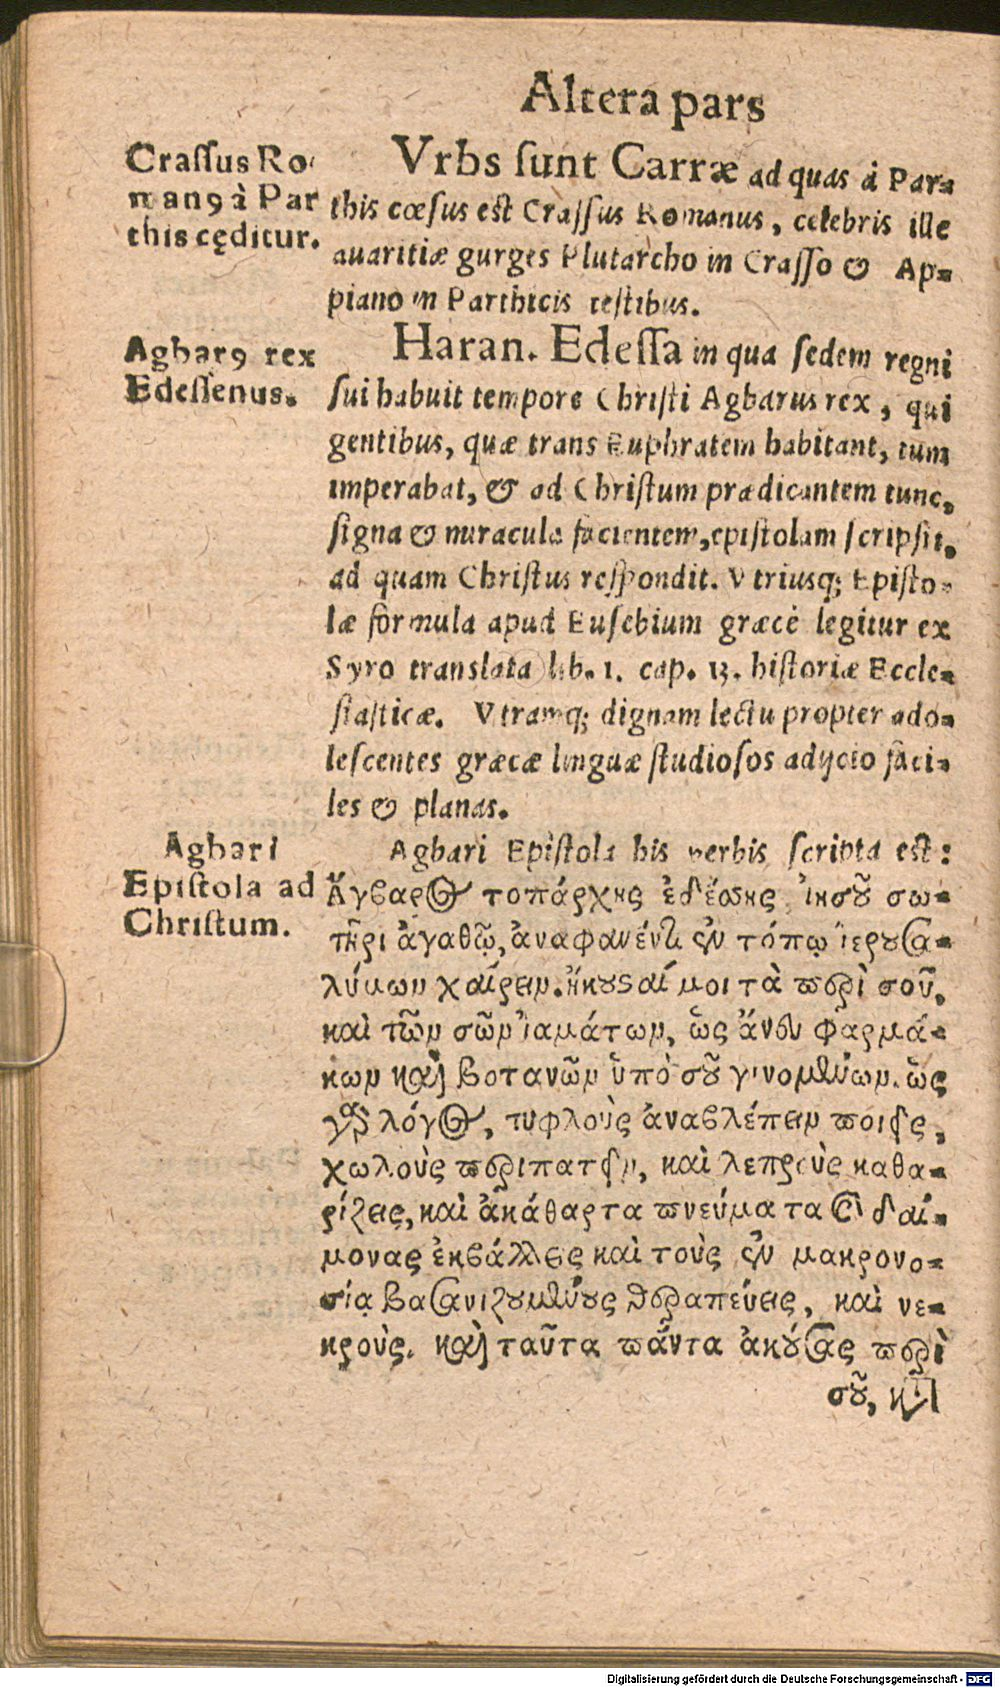 Altera pars
Crassus Ro-
manꝰ à Par
this cęditur.
Vrbs sunt Carræ ad quas à Par-
this cœsus est Crassus Romanus, celebris ille
auaritiæ gurges Plutarcho in Crasso & Ap-
piano in Parthicis testibus.
Agbarꝰ rex
Edessenus.
Haran. Edessa in qua sedem regni
sui habuit tempore Christi Agbarus rex, qui
gentibus, quæ trans Euphratem habitant, tum
imperabat, & ad Christum prædicantem tunc,
signa & miracula facientem, epistolam scripsit,
ad quam Christus respondit. Vtriusq; Episto-
læ formula apud Eusebium græcè legitur ex
Syro translata lib. 1. cap. 13. historiæ Eccle-
siasticæ. Vtramq; dignam lectu propter ado-
lescentes græcæ linguæ studiosos adijcio faci-
les & planas.
Agbari
Epistola ad
Christum.
Agbari Epistola his verbis scripta est:
Ἄγβαρος τοπάρχης ἐδέσσης ἰησοῦ σω-
τῆρι ἀγαθῷ, ἀναφανέντι ἐν τόπῳ ἱερουσα-
λύμων χαίρειν. ἤκουσαί μοι τὰ περὶ σοῦ,
καὶ τῶν σῶν ἰαμάτων, ὡς ἄνευ φαρμά-
κων καὶ βοτανῶν ὑπὸ σοῦ γινομένων. ὡς
γὰρ λόγος, τυφλοὺς ἀναβλέπειν ποιεῖς,
χωλοὺς περιπατεῖν, καὶ λεπροὺς καθα-
ρίζεις, καὶ ἀκάθαρτα πνεύματα καὶ δαί-
μονας ἐκβάλλεις καὶ τοὺς ἐν μακρονο-
σίᾳ βασανιζουμένους θεραπεύεις, καὶ νε-
κροὺς. καὶ ταῦτα πάντα ἀκούσας περὶ
σοῦ, κτ̀
Digitalisierung gefördert durch die Deutsche Forschungsgemeinschaft - DFG